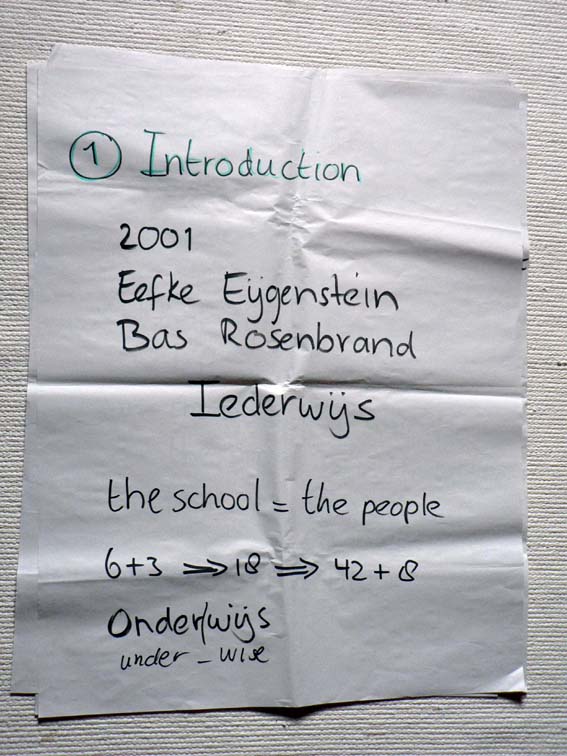 1 Introduction
2001
Eefke Eijgenstein
Bas Rosenbrand
Iederwijs
the school = the people
6+3 ⇒ 18 ⇒ 42 + 8
Onder/wijs
under - wise